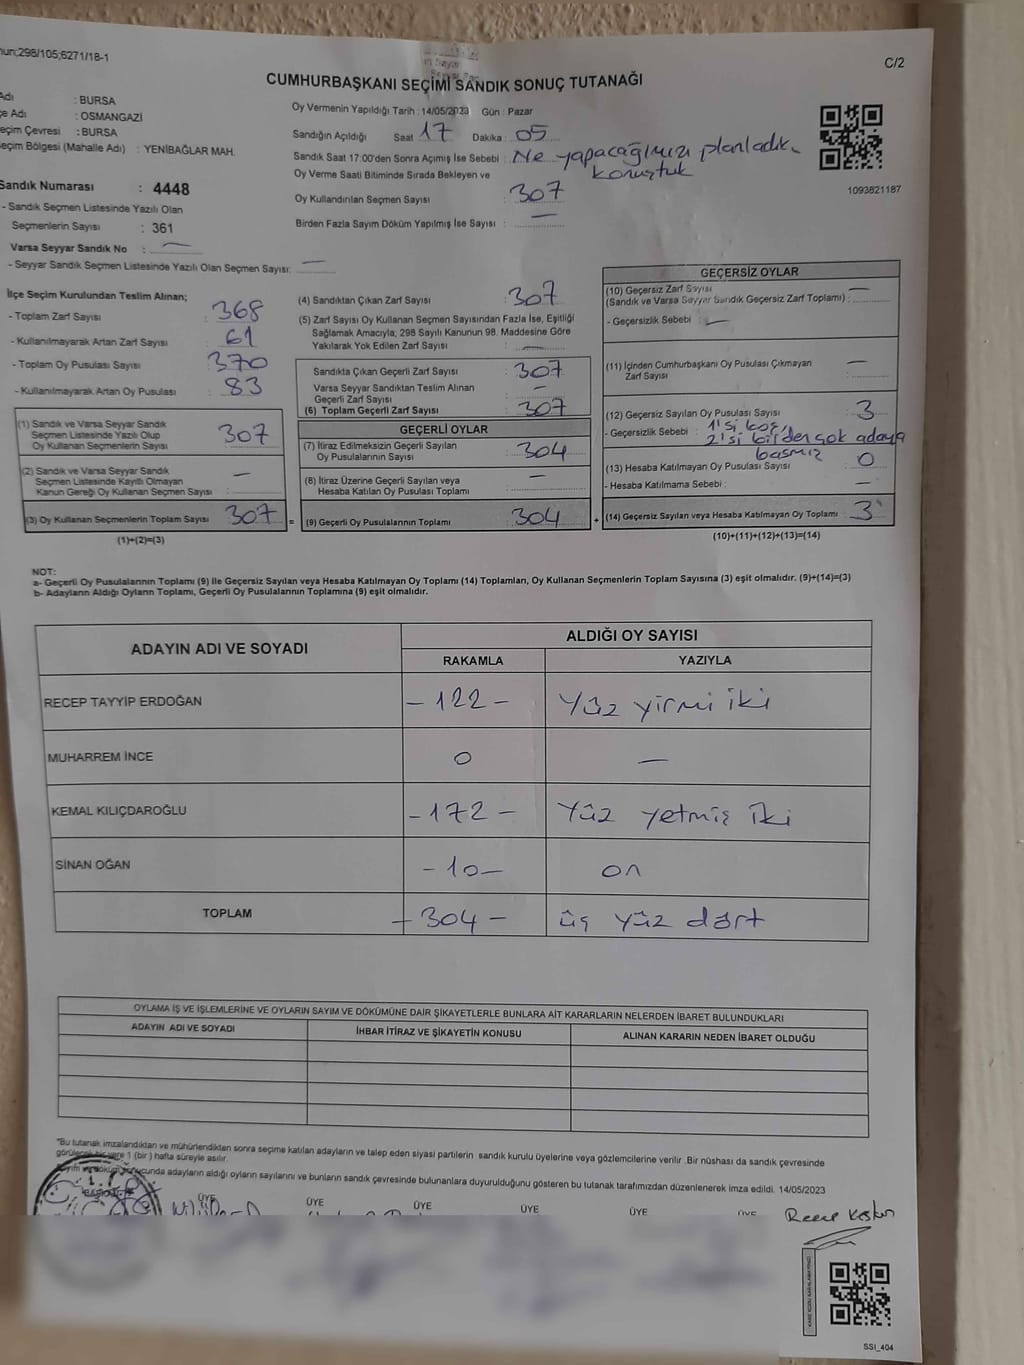 nun;298/105;6271/18-1
C/2
CUMHURBAŞKANI SEÇİMİ SANDIK SONUÇ TUTANAĞI
Adı : BURSA
çe Adı : OSMANGAZİ
eçim Çevresi : BURSA
eçim Bölgesi (Mahalle Adı) : YENİBAĞLAR MAH.
Sandık Numarası : 4448
- Sandık Seçmen Listesinde Yazılı Olan
Seçmenlerin Sayısı : 361
Varsa Seyyar Sandık No : —
- Seyyar Sandık Seçmen Listesinde Yazılı Olan Seçmen Sayısı: —
Oy Vermenin Yapıldığı Tarih : 14/05/2023 Gün : Pazar
Sandığın Açıldığı Saat : 17 Dakika : 05
Sandık Saat 17:00'den Sonra Açımış İse Sebebi : Ne yapacağımızı planladık,
konuştuk
Oy Verme Saati Bitiminde Sırada Bekleyen ve
Oy Kullandırılan Seçmen Sayısı : 307
Birden Fazla Sayım Döküm Yapılmış İse Sayısı : —
1093821187
İlçe Seçim Kurulundan Teslim Alınan;
- Toplam Zarf Sayısı : 368
- Kullanılmayarak Artan Zarf Sayısı : 61
- Toplam Oy Pusulası Sayısı : 370
- Kullanılmayarak Artan Oy Pusulası : 83
(1) Sandık ve Varsa Seyyar Sandık
Seçmen Listesinde Yazılı Olup
Oy Kullanan Seçmenlerin Sayısı : 307
(2) Sandık ve Varsa Seyyar Sandık
Seçmen Listesinde Kayıtlı Olmayan
Kanun Gereği Oy Kullanan Seçmen Sayısı : —
(3) Oy Kullanan Seçmenlerin Toplam Sayısı : 307 =
(1)+(2)=(3)
(4) Sandıktan Çıkan Zarf Sayısı : 307
(5) Zarf Sayısı Oy Kullanan Seçmen Sayısından Fazla İse, Eşitliği
Sağlamak Amacıyla; 298 Sayılı Kanunun 98. Maddesine Göre
Yakılarak Yok Edilen Zarf Sayısı : —
Sandıkta Çıkan Geçerli Zarf Sayısı : 307
Varsa Seyyar Sandıktan Teslim Alınan
Geçerli Zarf Sayısı : —
(6) Toplam Geçerli Zarf Sayısı : 307
GEÇERLİ OYLAR
(7) İtiraz Edilmeksizin Geçerli Sayılan
Oy Pusulalarının Sayısı : 304
(8) İtiraz Üzerine Geçerli Sayılan veya
Hesaba Katılan Oy Pusulası Toplamı : —
(9) Geçerli Oy Pusulalarının Toplamı : 304 +
GEÇERSİZ OYLAR
(10) Geçersiz Zarf Sayısı
(Sandık ve Varsa Seyyar Sandık Geçersiz Zarf Toplamı) : —
- Geçersizlik Sebebi : —
(11) İçinden Cumhurbaşkanı Oy Pusulası Çıkmayan
Zarf Sayısı : —
(12) Geçersiz Sayılan Oy Pusulası Sayısı : 3
- Geçersizlik Sebebi : 1'si boş,
2'si birden çok adaya
basmış
(13) Hesaba Katılmayan Oy Pusulası Sayısı : 0
- Hesaba Katılmama Sebebi : —
(14) Geçersiz Sayılan veya Hesaba Katılmayan Oy Toplamı : 3
(10)+(11)+(12)+(13)=(14)
NOT:
a- Geçerli Oy Pusulalarının Toplamı (9) ile Geçersiz Sayılan veya Hesaba Katılmayan Oy Toplamı (14) Toplamları, Oy Kullanan Seçmenlerin Toplam Sayısına (3) eşit olmalıdır. (9)+(14)=(3)
b- Adayların Aldığı Oyların Toplamı, Geçerli Oy Pusulalarının Toplamına (9) eşit olmalıdır.
ADAYIN ADI VE SOYADI ALDIĞI OY SAYISI
RAKAMLA YAZIYLA
RECEP TAYYİP ERDOĞAN - 122 - Yüz yirmi iki
MUHARREM İNCE 0 —
KEMAL KILIÇDAROĞLU - 172 - Yüz yetmiş iki
SİNAN OĞAN - 10 - on
TOPLAM - 304 - üç yüz dört
OYLAMA İŞ VE İŞLEMLERİNE VE OYLARIN SAYIM VE DÖKÜMÜNE DAİR ŞİKAYETLERLE BUNLARA AİT KARARLARIN NELERDEN İBARET BULUNDUKLARI
ADAYIN ADI VE SOYADI İHBAR İTİRAZ VE ŞİKAYETİN KONUSU ALINAN KARARIN NEDEN İBARET OLDUĞU
"Bu tutanak imzalandıktan ve mühürlendikten sonra seçime katılan adayların ve talep eden siyasi partilerin sandık kurulu üyelerine veya gözlemcilerine verilir .Bir nüshası da sandık çevresinde
görülecek bir yere 1 (bir ) hafta süreyle asılır.
Sayım ve döküm sonucunda adayların aldığı oyların sayılarını ve bunların sandık çevresinde bulunanlara duyurulduğunu gösteren bu tutanak tarafımızdan düzenlenerek imza edildi. 14/05/2023
ÜYE ÜYE ÜYE ÜYE ÜYE ÜYE
Recep Keskin
SSI_404